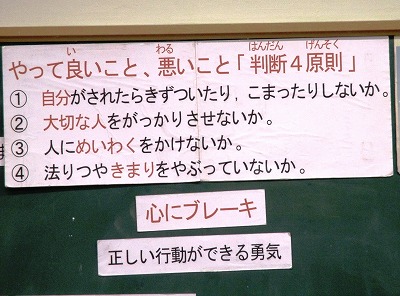 やって良いこと、悪いこと「判断4原則」
① 自分がされたらきずついたり，こまったりしないか。
② 大切な人をがっかりさせないか。
③ 人にめいわくをかけないか。
④ 法りつやきまりをやぶっていないか。
心にブレーキ
正しい行動ができる勇気